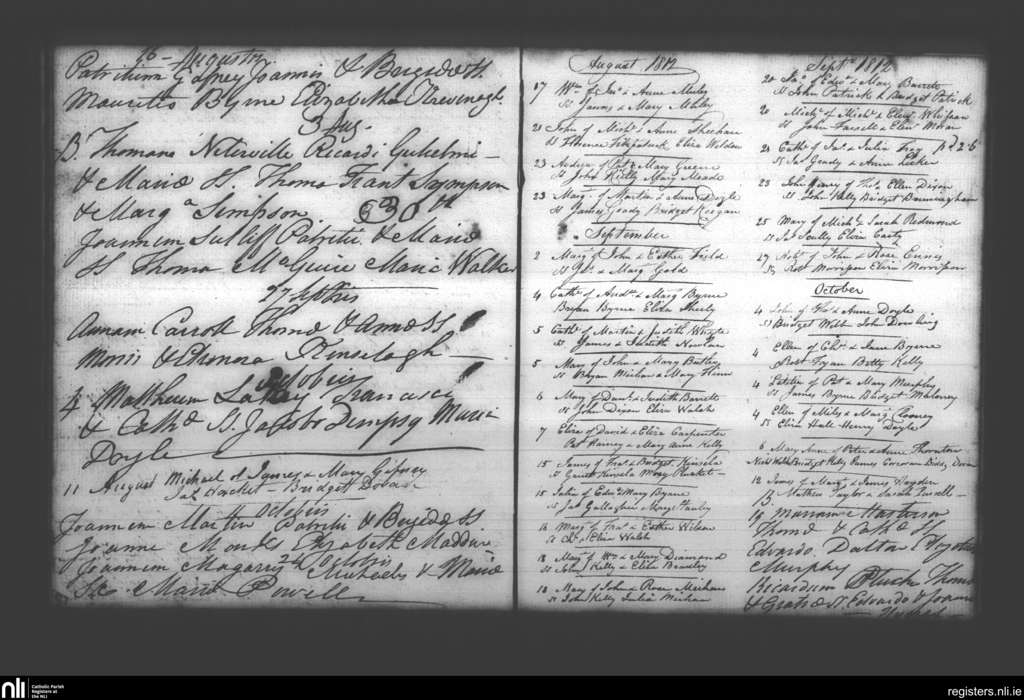 16 - Augustij
Patritium Gafney Joannis & Brigidæ SS.
Mauritio Byrne Elizabetha Kavenagh
3 Aug.
B. Thomam Neterville Ricardi Gulielmi -
& Mariæ SS. Thoma Grant Sympson
& Marg a Simpson 30th
Joannem Sutliff Patritii & Mariæ
SS Thoma McGuire Maria Walker
27 Septris
Annam Carroll Thomæ & Annæ SS
Moris & Thomas Kinselagh
Octobris
4 Mattheum Francisci
& Cathæ S. Jacobo Dempsy Maria
Doyle
11 August Michael of James & Mary Gibney
Jas Hacket - Bridget Doran
Octobris
Joannem Martin Patritii & Brigidæ SS.
Joanne Monks Elizabeth Maddin
Joannem Magarry Michaelis & Mariæ
SS. Maria Powell
August 1812
17 Wm of Jno & Anne Maley
SS James & Mary Maley
21 John of Michl & Anne Sheehan
SS Florence Fitzpatrick Eliza Weldon
23 Andrew of Pat & Mary Greene
SS John Reilly Mary Meade
23 Marg. of Martin & Anne Doyle
SS James Goady Bridget Keegan
September
2 Mary of John & Esther Field
SS Geo. & Mary Gold
4 Cathe of Andw & Mary Byrne
Bryan Byrne Eliza Sherly
5 Cathe of Martin & Judith Whyte
SS James & Judith Nowlan
5 Mary of John & Mary Butler
SS Bryan Michan & Mary Hinn
6 Mary of Danl & Judith Barrett
SS John Dixon Eliza Walsh
7 Eliza of David & Eliza Carpenter
Pat Harvey & Mary Anne Kelly
15 James of Frans & Bridget Kinsela
SS Garret Kinsela Mary Racket -
15 Julia of Edwd & Mary Byrne
SS Jas Gallagher Margt Hanly
16 Marg of Frans & Esther Wilson
SS Chs & Eliza Walsh
18 Mary of Wm & Mary Diamond
SS John Kelly & Eliza Bradley
18 Mary of John & Rose Meehan
SS John Kelly Julia Michan
Septr 1812
20 Jas of Edwd & Mary Barrett
SS John Patrick & Bridget Patrick
20 Michl of Michl & Eleanr Whelan
SS John Farrell & Elenr Moran
21 Cathe of Jas & Julia Troy
SS Jas Grady & Anne Tucker
23 John Henry of Thos & Ellen Dixon
SS John Kelly Bridget Bermingham
25 Mary of Michl & Sarah Redmond
SS Jas Scully Eliza Carty
27 Robt of John & Rose Ennis
SS Robt Morrison Eliza Morrison
October
4 John of Thos & Anne Doyle
SS Bridget Webb John Dowling
4 Ellen of Chrs & Jane Byrne
Robt Fryan Betty Kelly
4 Peter of Pat & Mary Murphy
SS James Byrne Bridget Maloney
4 Ellen of Miles & Marg Cooney
SS Eliza Hall Henry Doyle
6 Mary Anne of Peter & Anne Thornton
Bridget Kelly James Corcoran Biddy Doran
12 James of Marg & James Hayden
13 Mathew Taylor & Sarah Farrell -
14 Mariannæ
Thomæ & Cathæ SS
Edvardo Dalton
Murphy
Ricardum Thomæ
& Gratiæ SS Edvardo & Joanna
nli
Catholic Parish
Registers at
the NLI
registers.nli.ie